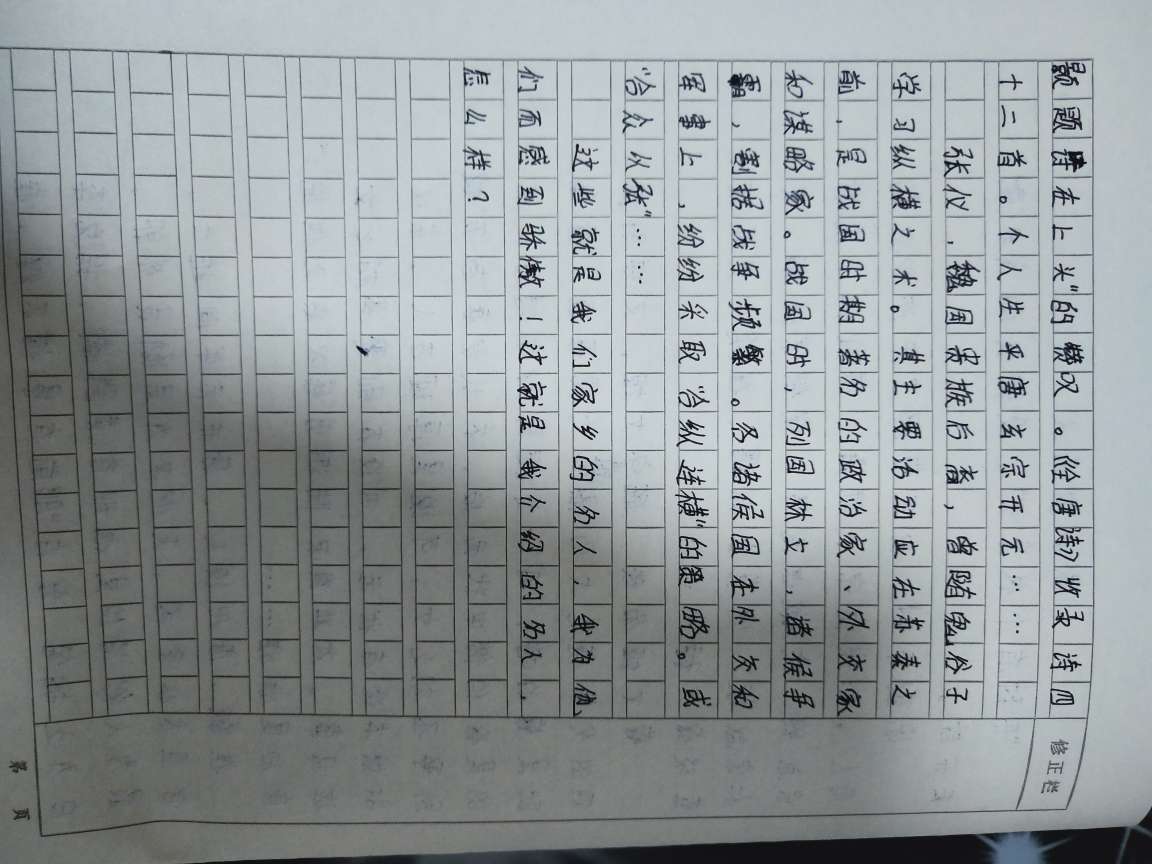 颢题诗在上头"的慨叹。《全唐诗》收录诗四
十二首。个人生平唐玄宗开元……
张仪，魏国贵族后裔，曾随鬼谷子
学习纵横之术。其主要活动应在苏秦之
前，是战国时期著名的政治家、外交家
和谋略家。战国时，列国林立，诸候争
霸，割据战争频繁。各诸侯国在外交和
军事上，纷纷采取"合纵连横"的策略。或
"合众从张"……
这些就是我们家乡的名人，我为他
们而感到骄傲！这就是我介绍的名人，
怎么样？
修正栏
第 页